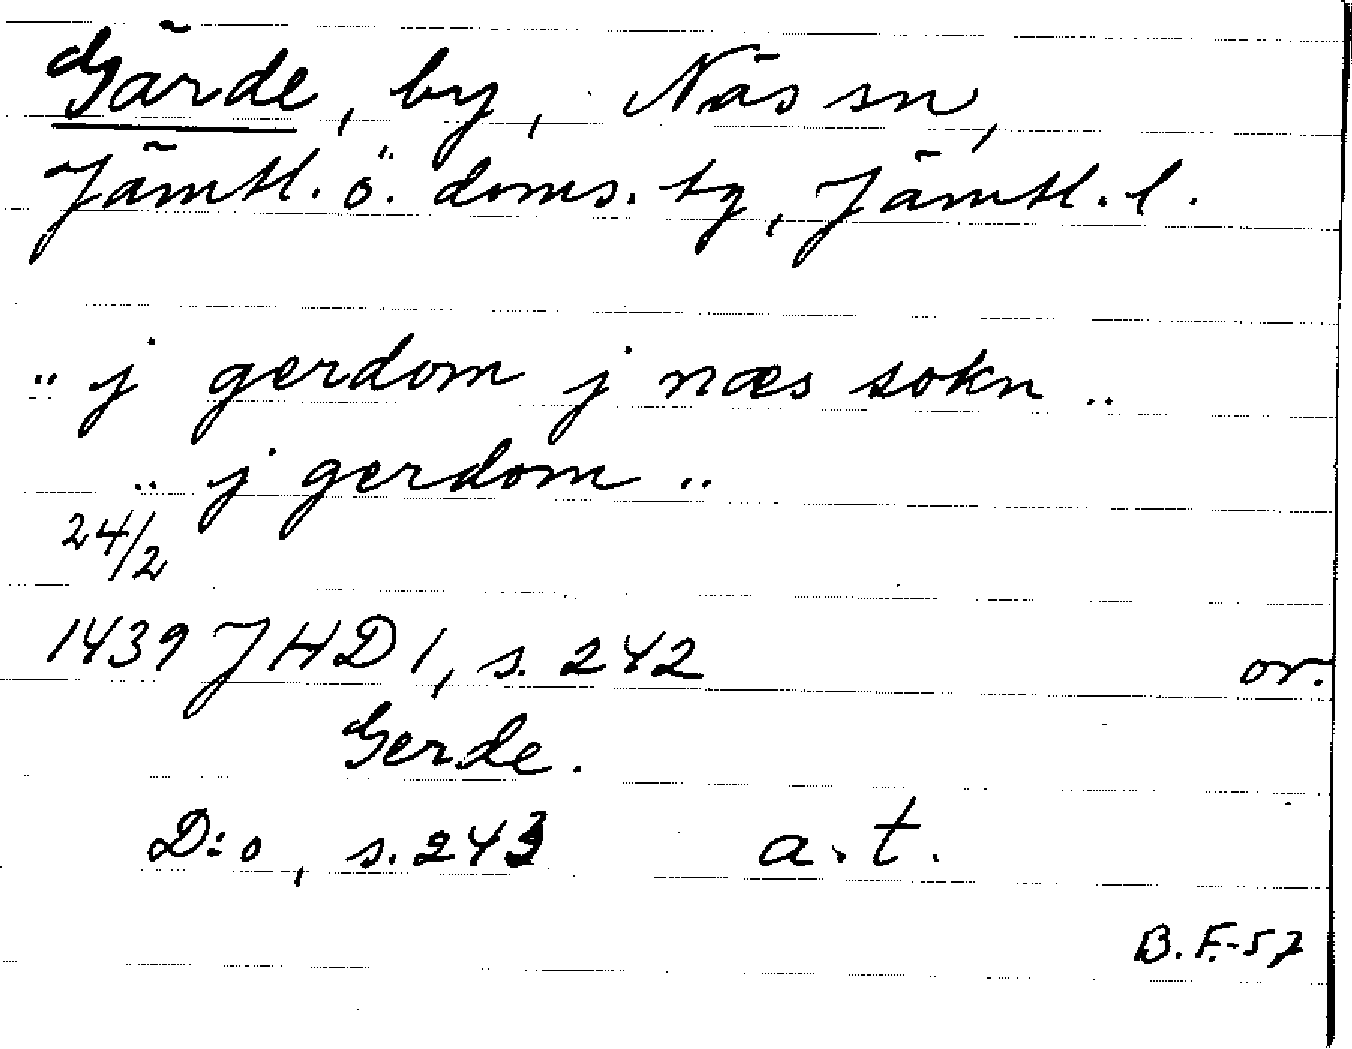 Gärde, by, Näs sn,
Jämtl. ö. doms. tg, Jämtl. l.
.. j gerdom j næs sokn ..
.. j gerdom ..
24/2
1439 JHD 1, s. 242 or.
Gerde.
D:o, s. 243 a.t.
B.F.-57